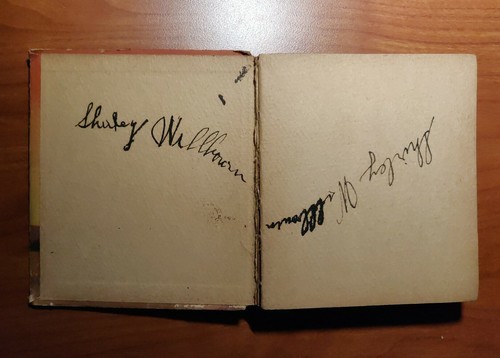 Shirley Wellbourn
Shirley Wellbourn